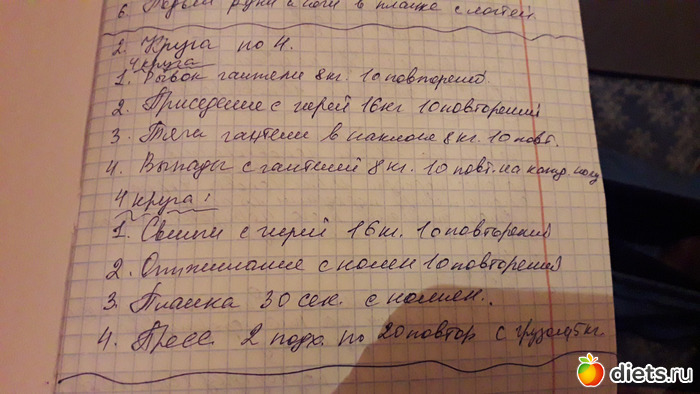 6. Подъем руки и ноги в планке с локтей.
2. Круга по 4.
4 круга
1. Рывок гантели 8 кг. 10 повторений.
2. Приседание с гирей 16 кг 10 повторений
3. Тяга гантели в наклоне 8 кг. 10 повт.
4. Выпады с гантелей 8 кг. 10 повт. на кажд. ногу
4 круга:
1. Свинги с гирей 16 кг. 10 повторений
2. Отжимание с колен 10 повторений
3. Планка 30 сек. с колен.
4. Пресс 2 подх. по 20 повтор с грузом 5 кг
diets.ru